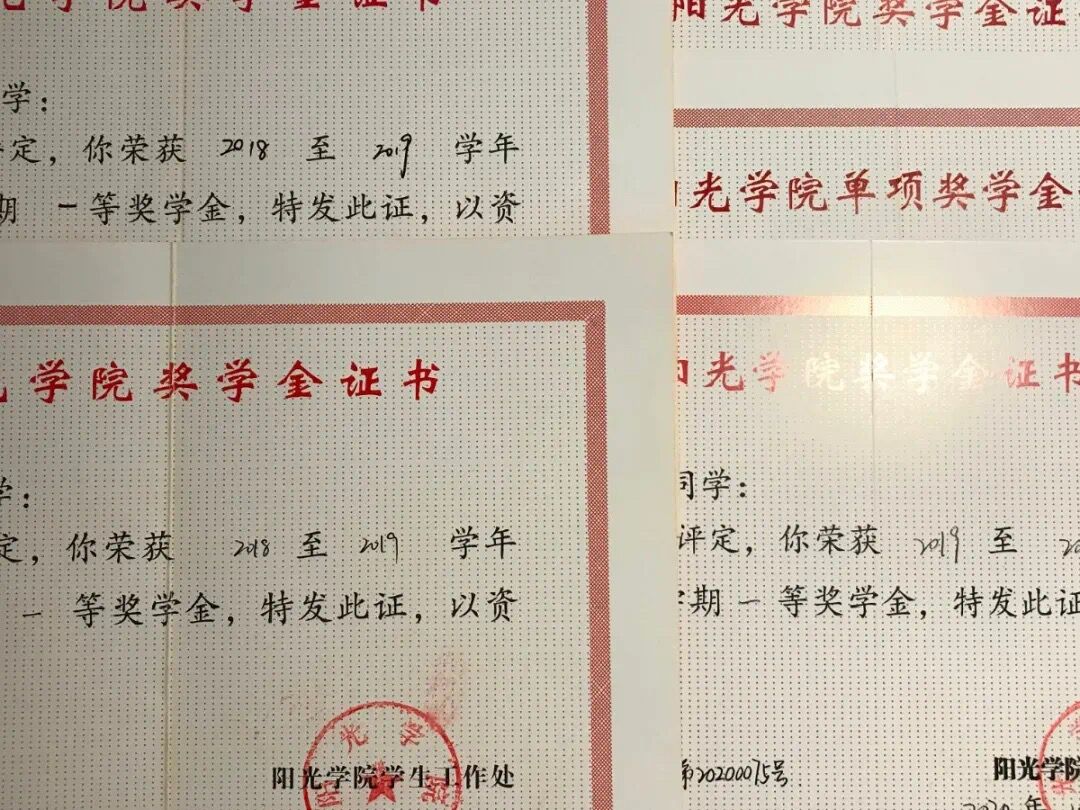 光学院奖学金证书
学：
定，你荣获 2018 至 2019 学年
期 一等奖学金，特发此证，以资
阳光学院奖学金证
阳光学院单项奖学金
学院奖学金证书
学：
定，你荣获 2018 至 2019 学年
一 等奖学金，特发此证，以资
光学
阳光学院学生工作处
阳光学院奖学金证书
同学：
评定，你荣获 2019 至 20
学期 一 等奖学金，特发此证
第20200075号
阳光学院
2020 年